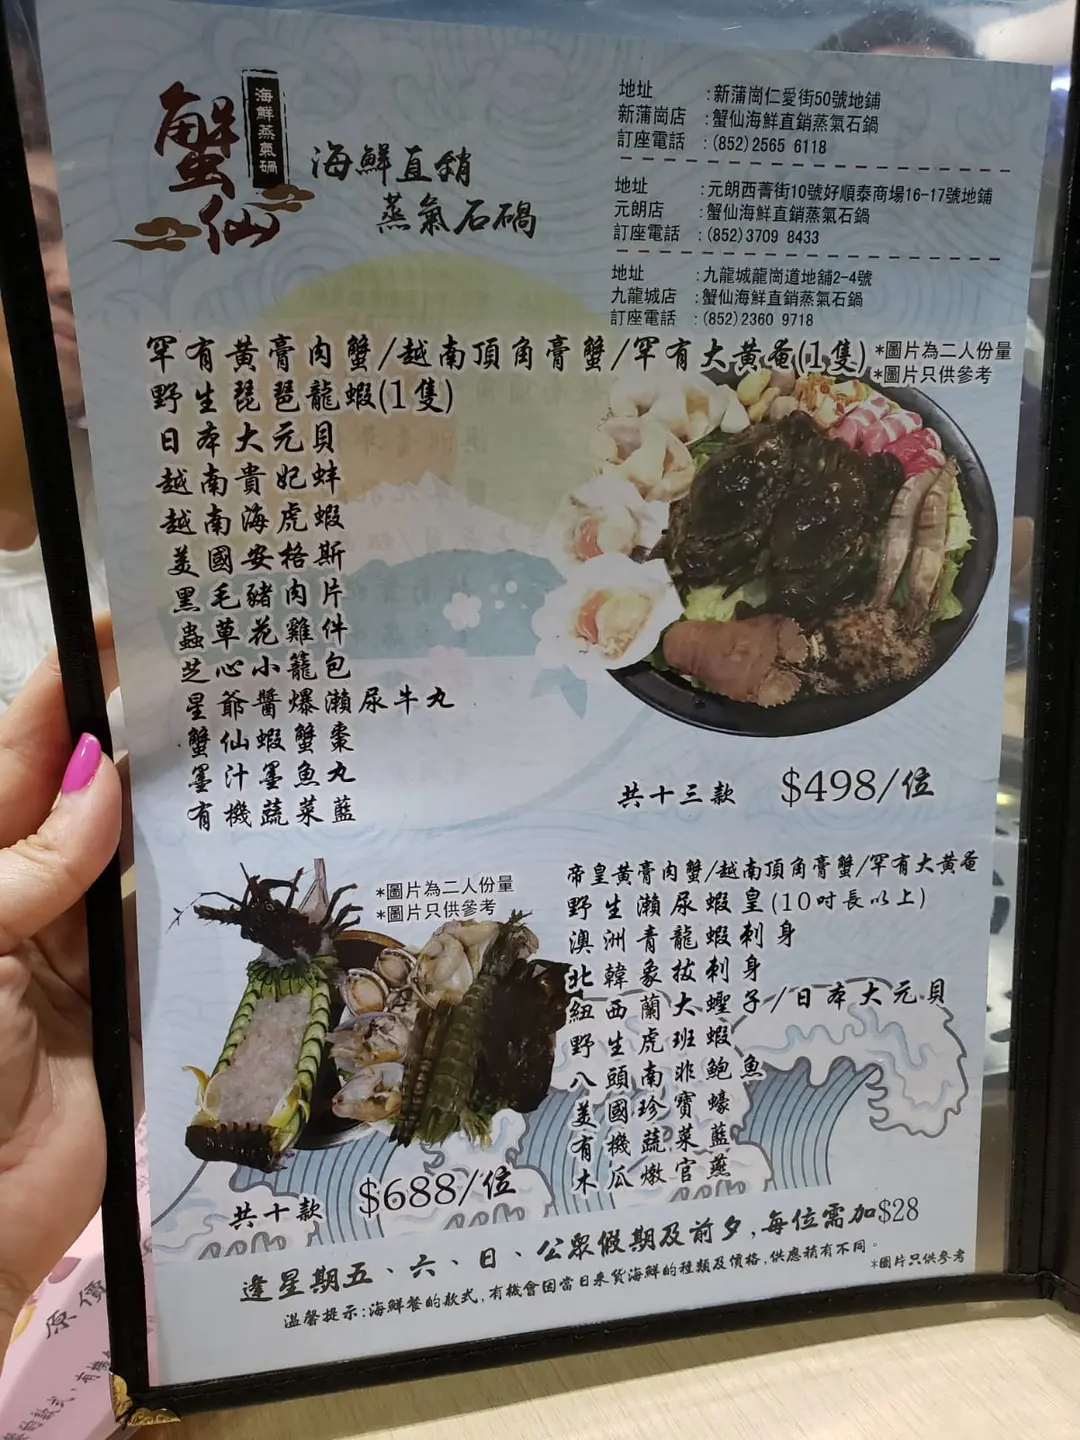 蟹仙
海鮮蒸氣石鍋
海鮮直銷
蒸氣石鍋
地址 :新蒲崗仁愛街50號地鋪
新蒲崗店 :蟹仙海鮮直銷蒸氣石鍋
訂座電話 :(852)2565 6118
地址 :元朗西菁街10號好順泰商場16-17號地鋪
元朗店 :蟹仙海鮮直銷蒸氣石鍋
訂座電話 :(852)3709 8433
地址 :九龍城龍崗道地舖2-4號
九龍城店 :蟹仙海鮮直銷蒸氣石鍋
訂座電話 :(852)2360 9718
罕有黃膏肉蟹/越南頂角膏蟹/罕有大黃奄(1隻)
*圖片為二人份量
*圖片只供參考
野生琵琶龍蝦(1隻)
日本大元貝
越南貴妃蚌
越南海虎蝦
美國安格斯
黑毛豬肉片
蟲草花雞件
芝心小籠包
星爺醬爆瀨尿牛丸
蟹仙蝦蟹棗
墨汁墨魚丸
有機蔬菜藍
共十三款 $498/位
*圖片為二人份量
*圖片只供參考
帝皇黃膏肉蟹/越南頂角膏蟹/罕有大黃奄
野生瀨尿蝦皇(10吋長以上)
澳洲青龍蝦刺身
北韓象拔刺身
紐西蘭大蟶子/日本大元貝
野生虎班蝦
八頭南非鮑魚
美國珍寶蠔
有機蔬菜藍
木瓜燉官燕
共十款 $688/位
逢星期五、六、日、公眾假期及前夕,每位需加$28
溫馨提示:海鮮餐的款式,有機會因當日來貨海鮮的種類及價格,供應稍有不同。
*圖片只供參考
原價